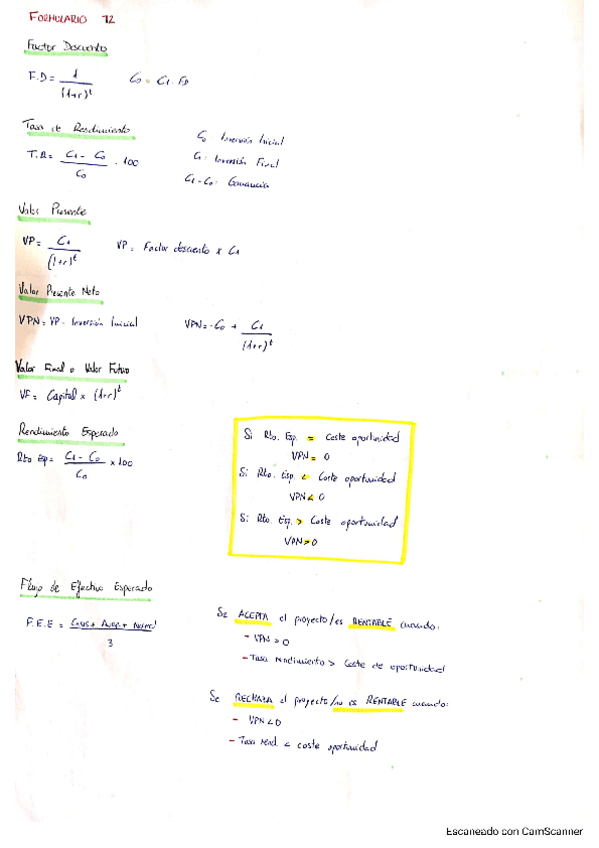 FORMULARIO T2
Factor Descuento
F.D = 1 / (1+r)^t    C0 = C1 . FD
Tasa de Rendimiento
T.R = C1 - C0 / C0 . 100
C0 Inversión Inicial
C1: Inversión Final
C1 - C0: Ganancia
Valor Presente
VP = C1 / (1+r)^t    VP = Factor descuento x C1
Valor Presente Neto
VPN = VP - Inversión Inicial    VPN = -C0 + C1 / (1+r)^t
Valor Final o Valor Futuro
VF = Capital x (1+r)^t
Rendimiento Esperado
Rto Esp = C1 - C0 / C0 x 100
Si Rto. Esp. = Coste oportunidad
VPN = 0
Si Rto. Esp. < Coste oportunidad
VPN < 0
Si Rto. Esp. > Coste oportunidad
VPN > 0
Flujo de Efectivo Esperado
F.E.E = + + Normal / 3
Se ACEPTA el proyecto/es RENTABLE cuando:
- VPN > 0
- Tasa rendimiento > Coste de oportunidad
Se RECHAZA el proyecto/no es RENTABLE cuando:
- VPN < 0
- Tasa rend. < coste oportunidad
Escaneado con CamScanner